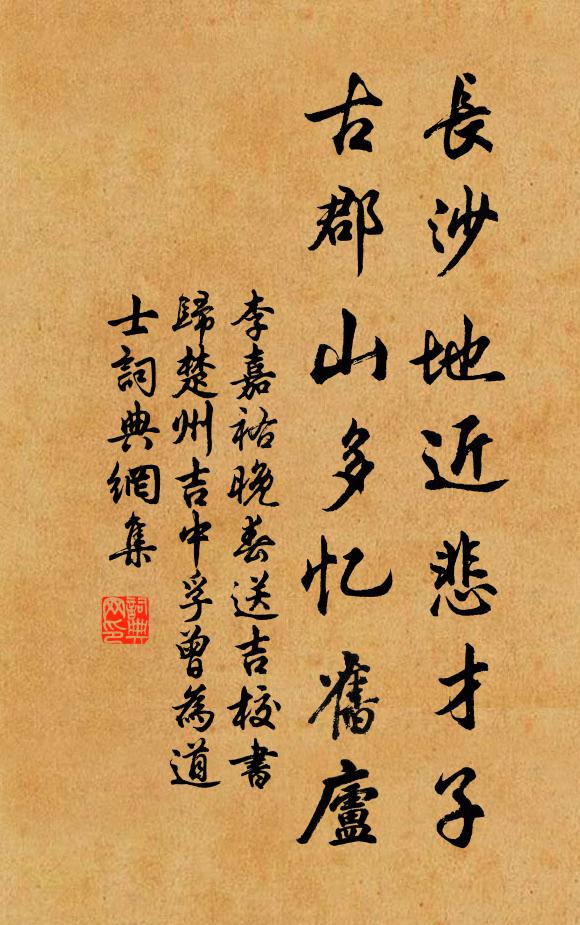 長沙地近悲才子
古郡山多忆舊廬
李嘉祐晚春送吉校書
歸楚州吉中孚曾為道
士詞典網集
詞典
网印